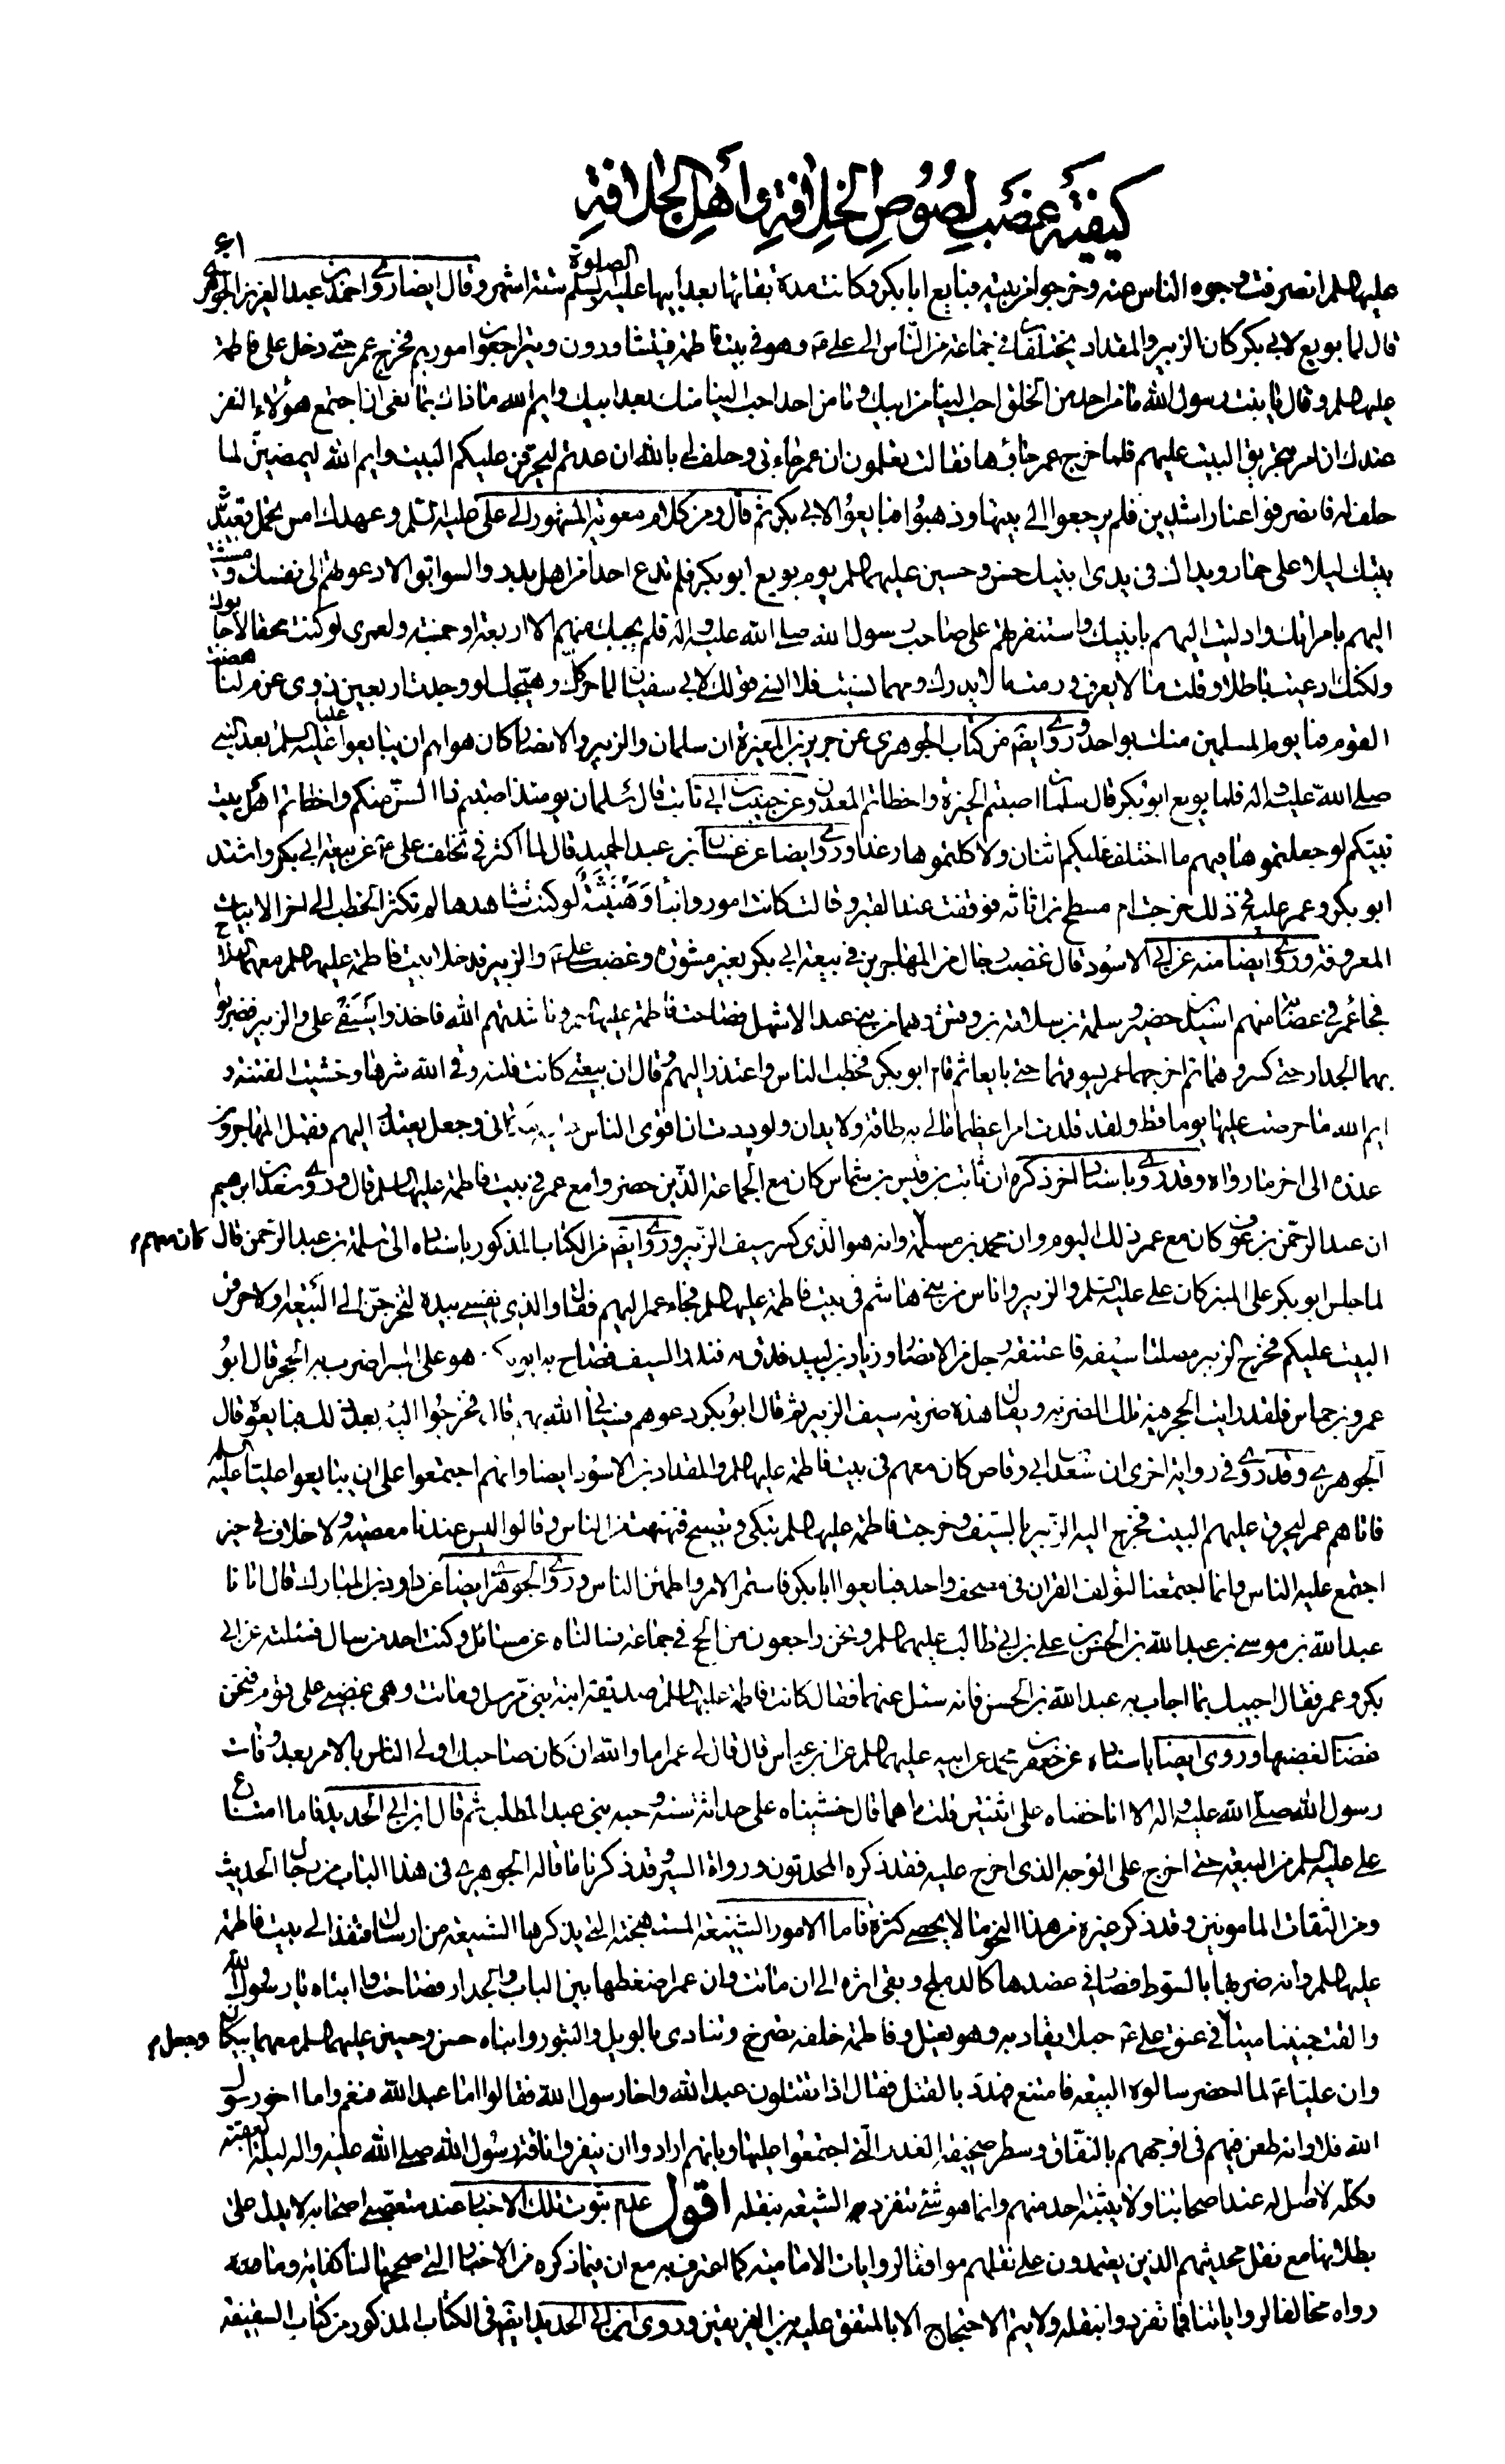 كيفية غصب لصوص الخلافة وأهل الجلافة
٤١
عليها السلم انصرفت وجوه الناس عنه وخرجوا من بيته فبايع ابا بكر وكانت مدة بقائها بعد أبيها عليه الصلوة والسلم ستة اشهر وقال ايضا روى احمد بن عبد العزيز الجوهري
قال لما بويع لابي بكر كان الزبير والمقداد يختلفان في جماعة من الناس الى علي ع وهو في بيت فاطمة فيتشاورون ويتراجعون امورهم فخرج عمر حتى دخل على فاطمة
عليها السلم وقال يا بنت رسول الله ما من احد من الخلق احب الينا من ابيك وما من احد احب الينا منك بعد ابيك وايم الله ما ذاك بمانعي ان اجتمع هؤلاء النفر
عندك ان امر بتحريق البيت عليهم فلما خرج عمر جاؤها فقالت تعلمون ان عمر جاءني وحلف لي بالله ان عدتم ليحرقن عليكم البيت وايم الله ليمضين لما
حلف له فانصرفوا عنا راشدين فلم يرجعوا الى بيتها وذهبوا فبايعوا لابي بكر ثم قال ومن كلام معوية المشهور الى علي عليه السلم وعهدك امس تحمل قعيدة
بيتك ليلا على حمار ويداك في يدي ابنيك حسن وحسين عليهما السلم يوم بويع ابو بكر فلم تدع احدا من اهل بدر والسوابق الا دعوتهم الى نفسك ومشيت
اليهم بامراتك وادليت اليهم بابنيك واستنفرتهم على صاحب رسول الله صلى الله عليه واله فلم يجبك منهم الا اربعة او خمسة ولعمري لو كنت محقا لاجابوك
ولكنك ادعيت باطلا وقلت ما لا يعرف ورمت ما لا يدرك ومهما نسيت فلا انسى قولك لابي سفيان لما حركك وهيجك لو وجدت اربعين ذوي عزم لناهضت
القوم فما يوم المسلمين منك بواحد وروى ايضا من كتاب الجوهري عن جرير بن المغيرة ان سلمان والزبير والانصار كان هواهم ان يبايعوا عليا عليه السلم بعد النبي
صلى الله عليه واله فلما بويع ابو بكر قال سلمان اصبتم الخيرة واخطاتم المعدن وعن حبيب بن ابي ثابت قال سلمان يومئذ اصبتم ذا السن منكم واخطاتم اهل بيت
نبيكم لو جعلتموها فيهم ما اختلف عليكم اثنان ولا كلتموها رغدا وروى ايضا عن غسان بن عبد الحميد قال لما اكثر في تخلف علي ع عن بيعة ابي بكر واشتد
ابو بكر وعمر عليه في ذلك خرجت ام مسطح بن اثاثة فوقفت عند القبر وقالت كانت امور وانباء وهنبثة لو كنت شاهدها لم تكثر الخطب الى اخر الابيات
المعروفة وروى ايضا منه عن ابي الاسود قال غضب رجال من المهاجرين في بيعة ابي بكر بغير مشورة وغضب علي ع والزبير فدخلا بيت فاطمة عليها السلم معهما السلاح
فجاء عمر في عصابة منهم اسيد بن حضير وسلمة بن سلامة بن وقش وهما من بني عبد الاشهل فصاحت فاطمة عليها السلم وناشدتهم الله فاخذوا سيفي علي والزبير فضربوا
بهما الجدار حتى كسروهما ثم اخرجهما عمر يسوقهما حتى بايعا ثم قام ابو بكر فخطب الناس واعتذر اليهم وقال ان بيعتي كانت فلتة وقى الله شرها وخشيت الفتنة و
ايم الله ما حرصت عليها يوما قط ولقد قلدت امرا عظيما ما لي به طاقة ولا يدان ولوددت ان اقوى الناس مكاني وجعل يعتذر اليهم فقبل المهاجرون
عذره الى اخر ما رواه وقد روى باسناد اخر ذكره ان ثابت بن قيس بن شماس كان مع الجماعة الذين حضروا مع عمر في بيت فاطمة عليها السلم قال وروى سعد بن ابرهيم
ان عبد الرحمن بن عوف كان مع عمر ذلك اليوم وان محمد بن مسلمة كان معهم وانه هو الذي كسر سيف الزبير وروى ايضا من الكتاب المذكور باسناده الى سلمة بن عبد الرحمن قال
لما جلس ابو بكر على المنبر كان علي عليه السلم والزبير واناس من بني هاشم في بيت فاطمة عليها السلم فجاء عمر اليهم فقال والذي نفسي بيده لتخرجن الى البيعة او لاحرقن
البيت عليكم فخرج الزبير مصلتا سيفه فاعتنقه رجل من الانصار وزياد بن لبيد فدق به فندر السيف فصاح به ابو بكر وهو على المنبر اضرب به الحجر قال ابو
عمرو بن حماس فلقد رايت الحجر فيه تلك الضربة ويقال هذه ضربة سيف الزبير ثم قال ابو بكر دعوهم فسياتي الله بهم قال فخرجوا اليه بعد ذلك فبايعوه قال
الجوهري وقد روى في رواية اخرى ان سعد بن ابي وقاص كان معهم في بيت فاطمة عليها السلم والمقداد بن الاسود ايضا وانهم اجتمعوا على ان يبايعوا عليا عليه السلم
فاتاهم عمر ليحرق عليهم البيت فخرج اليه الزبير بالسيف وخرجت فاطمة عليها السلم تبكي وتصيح فنهنهت من الناس وقالوا ليس عندنا معصية ولا خلاف في خير
اجتمع عليه الناس وانما اجتمعنا لنؤلف القران في مصحف واحد فبايعوا ابا بكر فاستمر الامر واطمئن الناس وروى الجوهري ايضا عن داود بن المبارك قال اتانا
عبد الله بن موسى بن عبد الله بن الحسن بن علي بن ابي طالب عليهما السلم ونحن راجعون من الحج في جماعة فسالناه عن مسائل وكنت احد من سال فسئلته عن ابي
بكر وعمر فقال اجيبك بما اجاب به عبد الله بن الحسن فانه سئل عنهما فقال كانت فاطمة عليها السلم صديقة ابنة نبي مرسل وماتت وهي غضبى على قوم فنحن
غضاب لغضبها وروى ايضا باسناده عن جعفر بن محمد عن ابيه عليهما السلم عن ابن عباس قال قال لي عمر اما والله ان كان صاحبك اولى الناس بالامر بعد وفات
رسول الله صلى الله عليه واله الا انا خفناه على اثنتين قلت ما هما قال خشيناه على حداثة سنه وحبه بني عبد المطلب ثم قال ابن ابي الحديد فاما امتناع
علي عليه السلم من البيعة حتى اخرج على الوجه الذي اخرج عليه فقد ذكره المحدثون ورواة السير وقد ذكرنا ما قاله الجوهري في هذا الباب من رجال الحديث
ومن الثقات المامونين وقد ذكر غيره من هذا النحو ما لا يحصى كثرة فاما الامور الشنيعة المستهجنة التي يذكرها الشيعة من ارسال قنفذ الى بيت فاطمة
عليها السلم وانه ضربها بالسوط فصار في عضدها كالدملج وبقي اثره الى ان ماتت وان عمر اضغطها بين الباب والجدار فصاحت وا ابتاه يا رسول الله
والقت جنينا ميتا وجعل في عنق علي ع حبلا يقاد به وهو يعتل وفاطمة خلفه تصرخ وتنادي بالويل والثبور وابناه حسن وحسين عليهما السلم معهما يبكيان
وان عليا ع لما احضر سالوه البيعة فامتنع فهدد بالقتل فقال اذا تقتلون عبد الله واخا رسول الله فقالوا اما عبد الله فنعم واما اخو رسول
الله فلا وانه طعن فيهم في اوجههم بالنفاق وسطر صحيفة الغدر التي اجتمعوا عليها وبانهم ارادوا ان ينفروا ناقة رسول الله صلى الله عليه واله ليلة العقبة
فكله لا اصل له عند اصحابنا ولا يثبته احد منهم وانما هو شئ تنفرد الشيعة بنقله اقول عدم ثبوت تلك الاخبار عند متعصبي اصحابه لا يدل على
بطلانها مع نقل محدثيهم الذين يعتمدون على نقلهم موافقا لروايات الامامية كما اعترف به مع ان فيما ذكره من الاخبار التي صححها لنا كفاية وما
رواه مخالفا لرواياتنا فما تفردوا بنقله ولا يتم الاحتجاج الا بالمتفق عليه بين الفريقين وروى ابن ابي الحديد ايضا في الكتاب المذكور من كتاب السقيفة